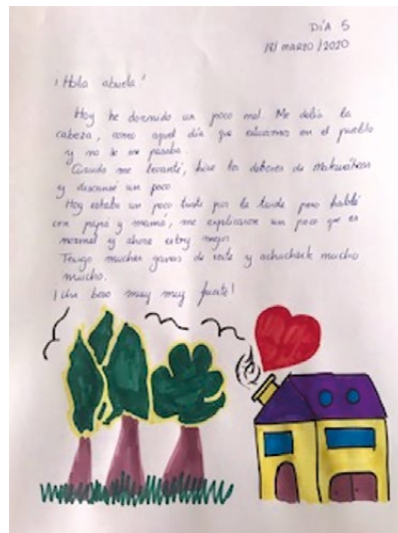 DÍA 5
18/MARZO/2020
¡Hola abuela!
Hoy he dormido un poco mal. Me dolía la
cabeza, como aquel día que estuvimos en el pueblo
y no se me pasaba.
Cuando me levanté, hice los deberes de Matemáticas
y descansé un poco
Hoy estaba un poco triste por la tarde pero hablé
con papá y mamá, me explicaron un poco que es
normal y ahora estoy mejor
Tengo muchas ganas de verte y achucharte mucho
mucho.
¡Un beso muy muy fuerte!